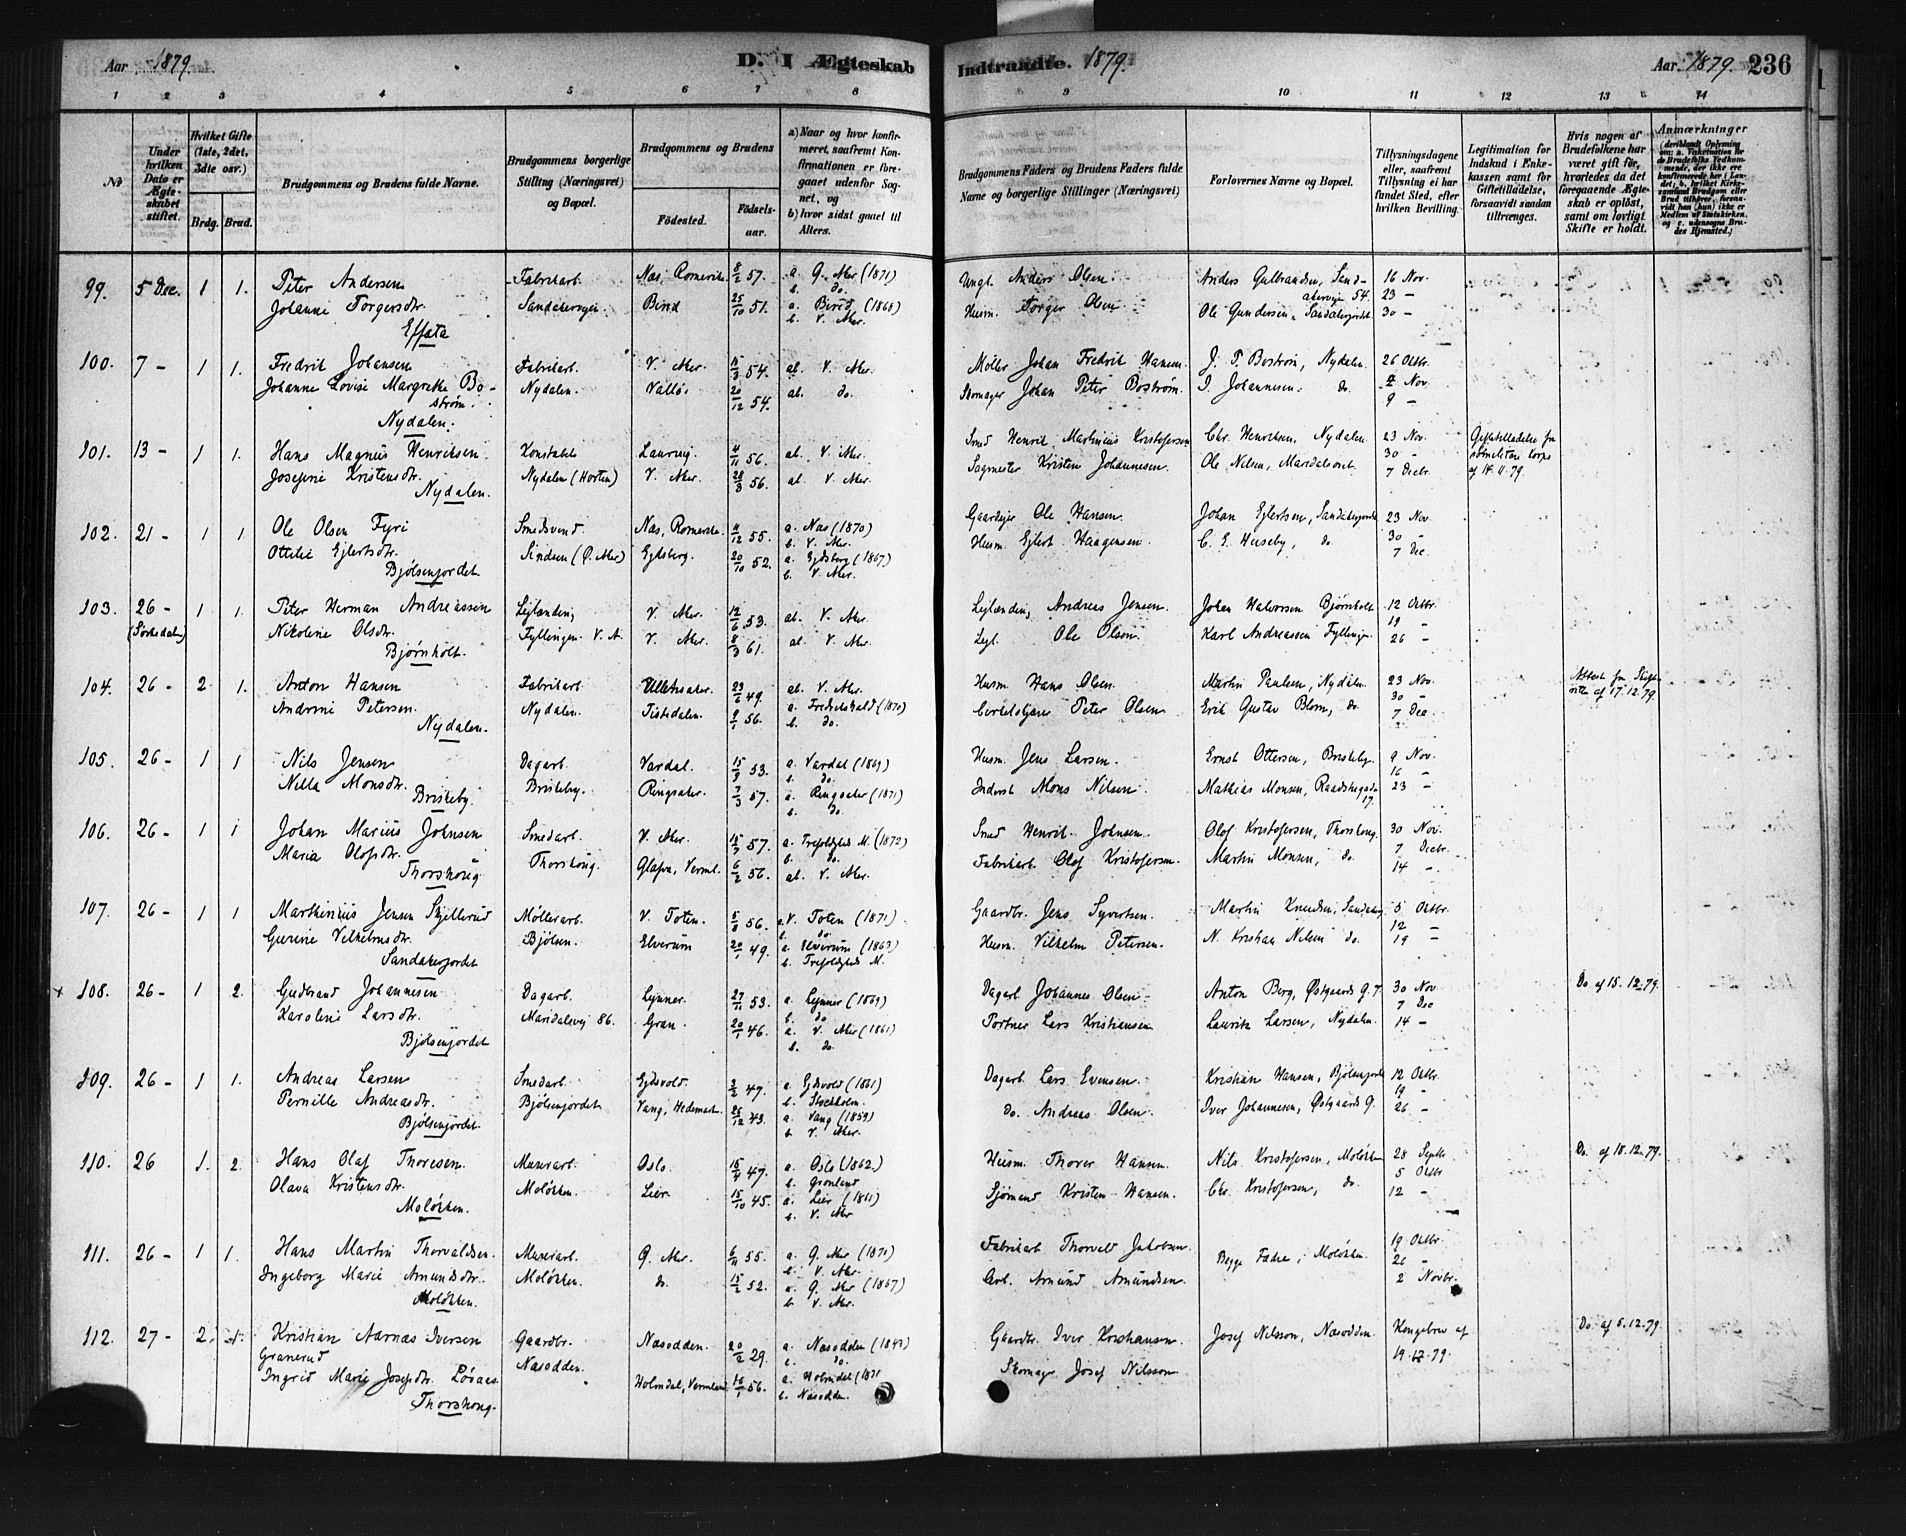 Aar 1879.
D. I Ægteskab
Indtraadte. 1879.
Aar 1879. 236
1 2 3 4 5 6 7 8 9 10 11 12 13 14
No
Under hvilken Dato er Ægteskabet stiftet.
Hvilket Gifte (1ste, 2det, 3die osv.)
Brdg. Brud.
Brudgommens og Brudens fulde Navne.
Brudgommens borgerlige Stilling (Næringsvei) og Bopæl.
Brudgommens og Brudens
Fødested. Fødselsaar.
a) Naar og hvor konfirmeret, saafremt Konfirmationen er foregaaet udenfor Sognet, og
b) hvor sidst gaaet til Alters.
Brudgommens Faders og Brudens Faders fulde Navne og borgerlige Stillinger (Næringsvei)
Forlovernes Navne og Bopæl.
Tillysningsdagene eller, saafremt Tillysning ei har fundet Sted, efter hvilken Bevilling.
Legitimation for Indskud i Enkekassen samt for Giftetilladelse, forsaavidt saadan tiltrænges.
Hvis nogen af Brudefolkene har været gift før, hvorledes da det foregaaende Ægteskab er opløst, samt om lovligt Skifte er holdt.
Anmærkninger
99. 5 Dec. 1 1. Peter Andersen Fabrikarb. Nas, Romerike 8/2 57. a. Ø. Aker (1871) Ungk. Anders Olsen. Anders Gulbrandsen, Sandakervejn 54. 16 Nov.
b. do. 23 -
Johanne Torgersdtr. Sandakervejen Birid 25/10 51. a. Birid (1868) Husm. Torger Olsen Ole Gundersen, Sandakerjordet 30 -
Effata b. V. Aker.
100. 7 - 1 1. Fredrik Johansen Fabrikarb. V. Aker 15/3 54. ab. V. Aker. Møller Johan Fredrik Hansen. J. P. Bostrøm, Nydalen. 26 Oktbr.
Johanne Lovise Margrethe Bostrøm. Nydalen. Vallø. 20/12 54. ab. do. Skomager Johan Peter Bostrøm. J. Johannesen. do 2 Nov.
Nydalen. 9 -
101. 13 - 1 1. Hans Magnus Henriksen. Konstabel Laurvig. 4/11 56. ab. V. Aker. Smed Henrik Martinius Kristofersen Chr. Henriksen, Nydalen. 23 Nov. Giftetilladelse fra
30 -
Josefine Kristensdtr. Nydalen (Horten) V. Aker. 28/3 56. ab. V. Aker. Sagmester Kristen Johannesen. Ole Nilsen, Maridalsvet. 7 Decbr. af 14.11.79.
Nydalen.
102. 21 - 1 1 Ole Olsen Fyri Smedsvend Nas, Romerike 4/12 55. a. Nas (1870) Gaardejer Ole Hansen. Johan Ejlertsen, Sandakerjordet 23 Nov.
b. V. Aker. 30 -
Ottilie Ejlertsdtr. Sindsen (Ø. Aker) Ejdsberg. 20/10 52. a. Ejdsberg (1867) Husm. Ejlert Haagensen. C. E. Huseby, do 7 Dec.
Bjølsenjordet b. V. Aker.
103. 26 - 1 1. Peter Herman Andreassen Lejlænding V. Aker. 12/6 53. ab. V. Aker. Lejlænding Andreas Jensen. Johan Halvorsen Bjørnholt 12 Oktbr.
(Sørkedalen) 19 -
Nikoline Olsdtr. Fyllingen. V. A. V. Aker. 8/3 61. ab. V. Aker. Lejl. Ole Olsen. Karl Andreassen Fyllingen. 26 -
Bjørnholt.
104. 26 - 2 1. Anton Hansen Fabrikarb. Ullensaker. 23/6 49. ab. V. Aker. Husm. Hans Olsen. Martin Paulsen, Nydalen. 23 Nov. Attest fra Skifteretten af 17.12.79.
30 -
Andrine Petersen. Nydalen. Tistedalen. 9/1 56. a. Fredrikshald (1870) Peter Olsen Erik Gustav Blom, do 7 Dec.
Nydalen. b. do.
105. 26 - 1 1 Nils Jensen Dagarb. Vardal. 15/9 53. a. Vardal (1869) Husm. Jens Larsen. Ernst Ottersen, Briskeby. 9 Nov.
b. do. 16 -
Nilla Monsdtr. Briskeby. Ringsaker. 7/3 57. a. Ringsaker (1871) Inderst Mons Nilsen Mathias Monsen, Raadhusgaden 17. 23 -
Briskeby. b. do.
106. 26 - 1 1 Johan Marius Johnsen Smedarb. V. Aker. 15/7 57. a. Trefoldighed M. (1872) Smed Henrik Johnsen. Olof Kristofersen, Thorshoug. 30 Nov.
b. do. 7 Decbr.
Maria Olofsdtr. Thorshoug. Glafva, Verml. 6/2 56. ab. V. Aker. Fabrikarb. Olof Kristofersen. Martin Monsen, do. 14 -
Thorshoug
107. 26 - 1 1 Marthinius Jensen Skjellerud Møllerarb. V. Toten. 5/8 56. a. V. Toten (1871) Gaardbr. Jens Syvertsen. Martin Knudsen, Sandaker 5 Oktbr.
b. do. 12 -
Gurine Vilhelmsdtr. Bjølsen. Elverum 20/1 49. a. Elverum (1863) Husm. Vilhelm Petersen. N. Kristian Nilsen do. 19 -
Sandakerjordet b. Trefoldighed M.
108. 26 - 1 2. Gudbrand Johannesen Dagarb. Lejnner. 27/11 53. a. Lejnner (1869) Dagarb. Johannes Olsen Anton Berg, Østgaards G. 7. 30 Nov. Do af 15.12.79.
b. do 7 Dec
Karoline Larsdtr. Maridalsvej 86. Gran. 20/1 46. a. V. Aker (1861) Portner Lars Kristiansen Lauritz Larsen, Nydalen. 14 -
Bjølsenjordet b. do.
109. 26 - 1 1. Andreas Larsen Smedarb. Ejdsvold. 2/2 47. a. Ejdsvold (1861) Dagarb. Lars Evensen. Kristian Hansen, Bjølsenjordet 12 Oktbr.
b. Stockholm. 19 -
Pernille Andreasdtr. Bjølsenjordet Vang, Hedemark. 26/12 43. a. Vang (1859) do. Andreas Olsen. Iver Johannesen, Østgaards G. 26 -
Bjølsenjordet. b. V. Aker.
110. 26 1. 2. Hans Olaf Thoresen Murerarb. Oslo. 15/4 47. a. Oslo (1862) Husm. Thorer Hansen. Nils Kristofersen, Moløkken 28 Septbr Do. af 18.12.79.
b. Grønland 5 Oktbr
Olava Kristensdtr. Moløkken. Lier. 15/10 45. a. Lier (1861) Sjømand Kristen Hansen. Chr. Kristofersen, do 12 -
Moløkken. b. V. Aker
111. 26 - 1 1. Hans Martin Thorvaldsen. Murerarb. Ø. Aker. 6/11 55. a. Ø. Aker (1870) Fabrikarb Thorvald Jakobsen. Begge Fædre, Moløkken. 19 Oktbr.
b. V. Aker. 26 -
Ingeborg Marie Amundsdtr. Moløkken. do. 15/2 52. a. Ø. Aker (1867) Arb. Amund Amundsen. 2 Novbr.
Moløkken. b. V. Aker.
112. 27 - 2. 1. Kristian Aarnæs Iversen Gaardbr. Næsodden. 20/2 29. a. Næsodden (1843) Gaardbr. Iver Kristiansen. Josef Nilsson, Næsodden. Kongebrev af Do. af 5.12.79.
Granerud b. do. 19.12.79.
Ingrid Marie Josefsdtr. Løvaas Næsodden. Holmdal, Vermland 16/1 56. a. Holmdal (1871 Skomager Josef Nilsson
Thorshoug. b. Næsodden.